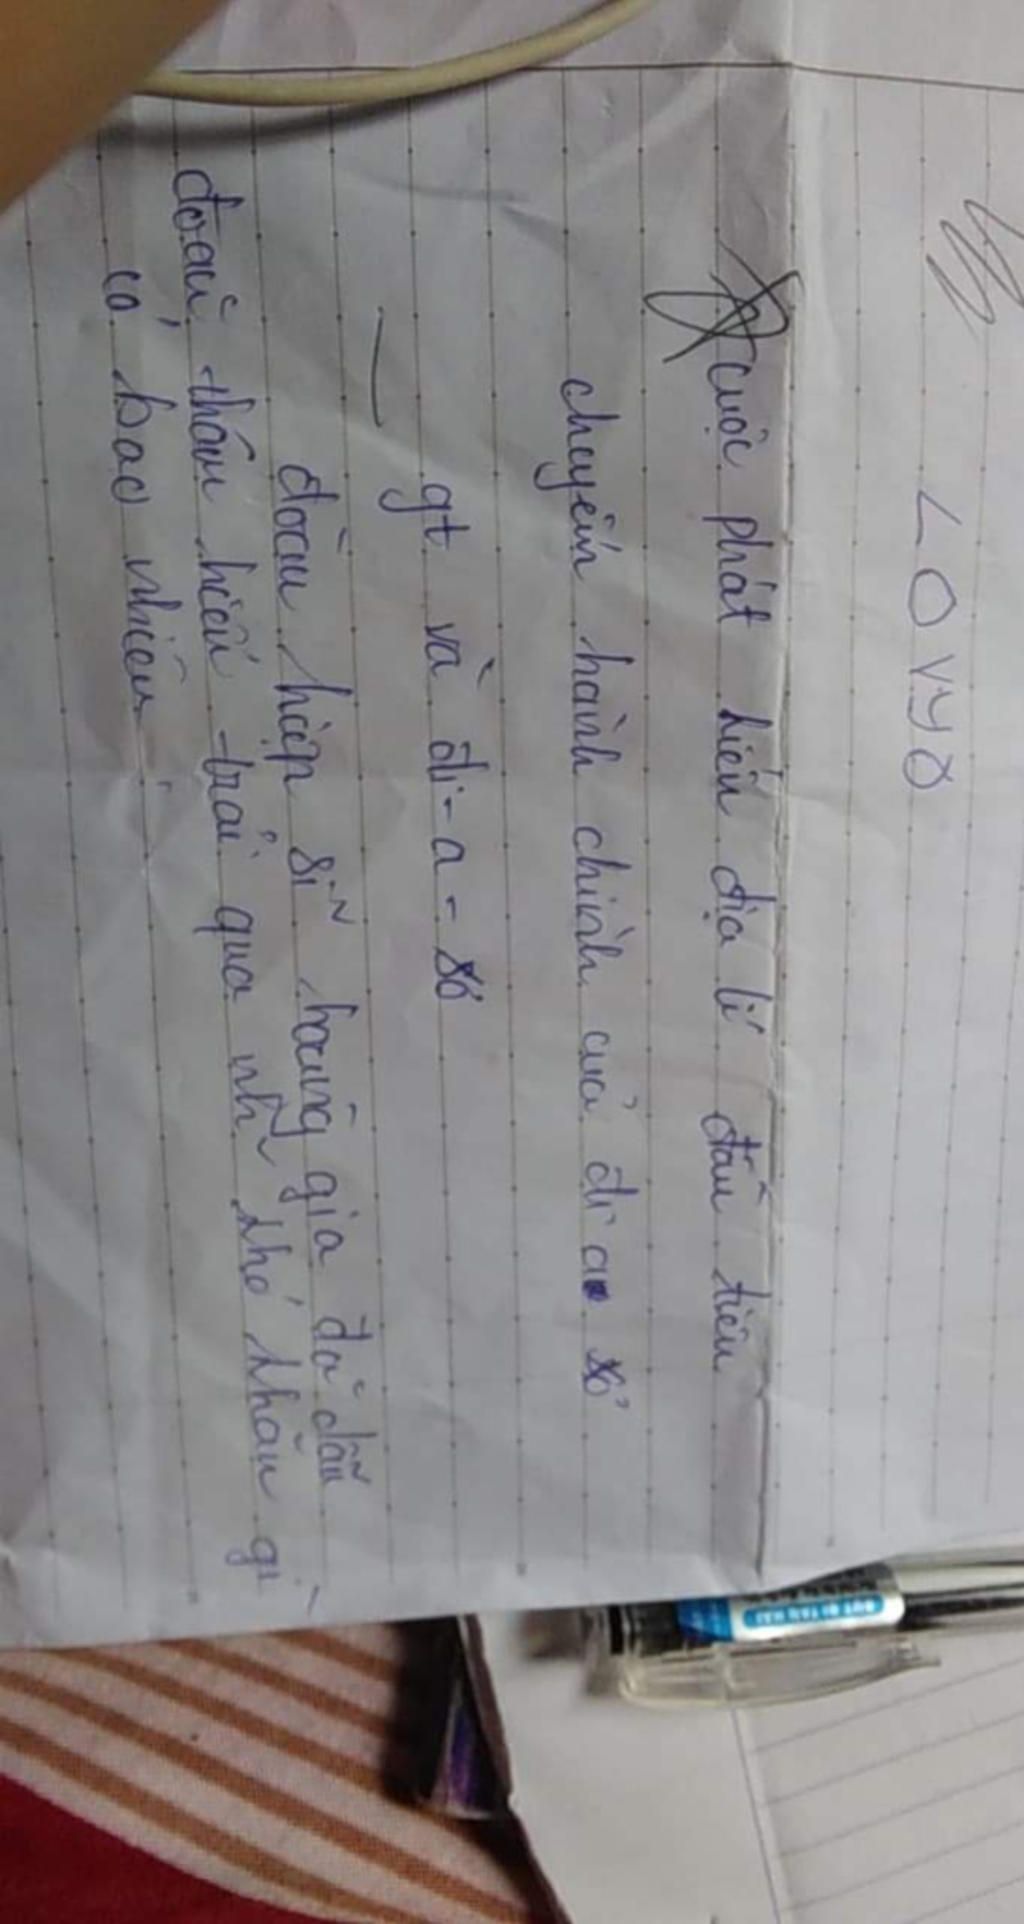 LOVYO
cuộc phát kiến địa lí đầu tiên
chuyến hành chình của đi a xô
gt và đi-a-xô
đoàn hiệp sĩ hoàng gia đã dẫn
đoàn thám hiểm trải qua nh~ khó khăn gì
có bao nhiêu
BÚT BI TÂN HẢI